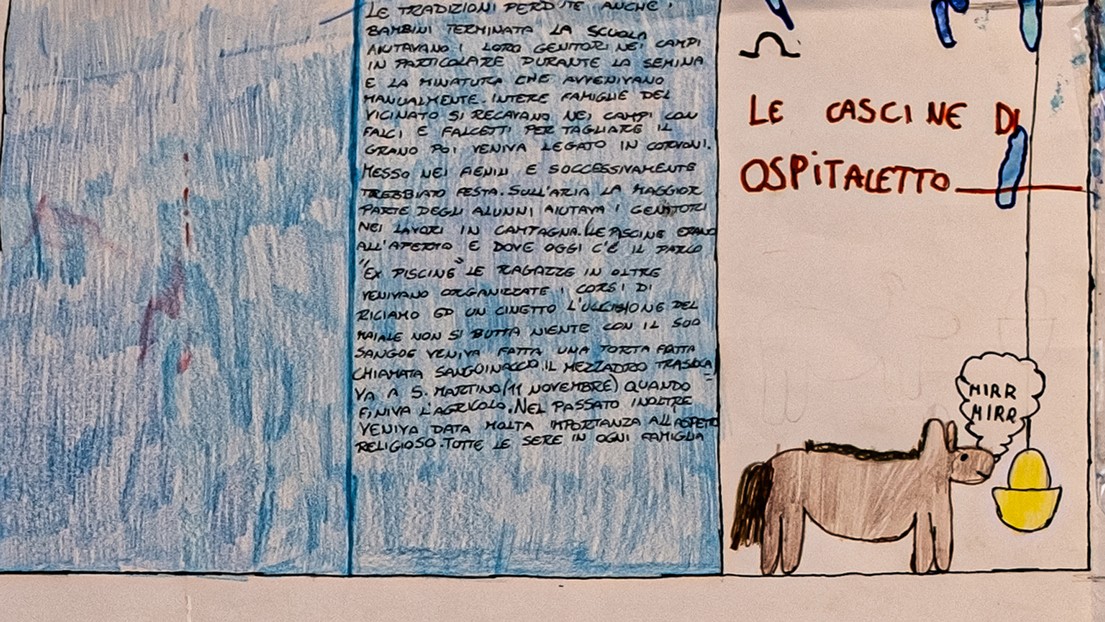 LE TRADIZIONI PERDUTE ANCHE I
BAMBINI TERMINATA LA SCUOLA
AIUTAVANO I LORO GENITORI NEI CAMPI
IN PARTICOLARE DURANTE LA SEMINA
E LA MINATURA CHE AVVENIVANO
MANUALMENTE. INTERE FAMIGLIE DEL
VICINATO SI RECAVANO NEI CAMPI CON
FALCI E FALCETTI PER TAGLIARE IL
GRANO POI VENIVA LEGATO IN COVONI.
MESSO NEI FIENILI E SUCCESSIVAMENTE
TREBBIATO FESTA. SULL'ARIA LA MAGGIOR
PARTE DEGLI ALUNNI AIUTAVA I GENITORI
NEI LAVORI IN CAMPAGNA. LE PISCINE ERANO
ALL'APERTO E DOVE OGGI C'È IL PARCO
"EX PISCINE" LE RAGAZZE IN OLTRE
VENIVANO ORGANIZZATE I CORSI DI
RICIAMO ED UN CINETTO L'UCCISIONE DEL
MAIALE NON SI BUTTA NIENTE CON IL SUO
SANGUE VENIVA FATTA UNA TORTA FATTA
CHIAMATA SANGUINACCIO. IL MEZZADRO TRASLOCA
VA A S. MARTINO (11 NOVEMBRE) QUANDO
FINIVA L'AGRICOLA. NEL PASSATO INOLTRE
VENIVA DATA MOLTA IMPORTANZA ALL'ASPETTO
RELIGIOSO. TUTTE LE SERE IN OGNI FAMIGLIA
LE CASCINE DI
OSPITALETTO
HIRR
HIRR